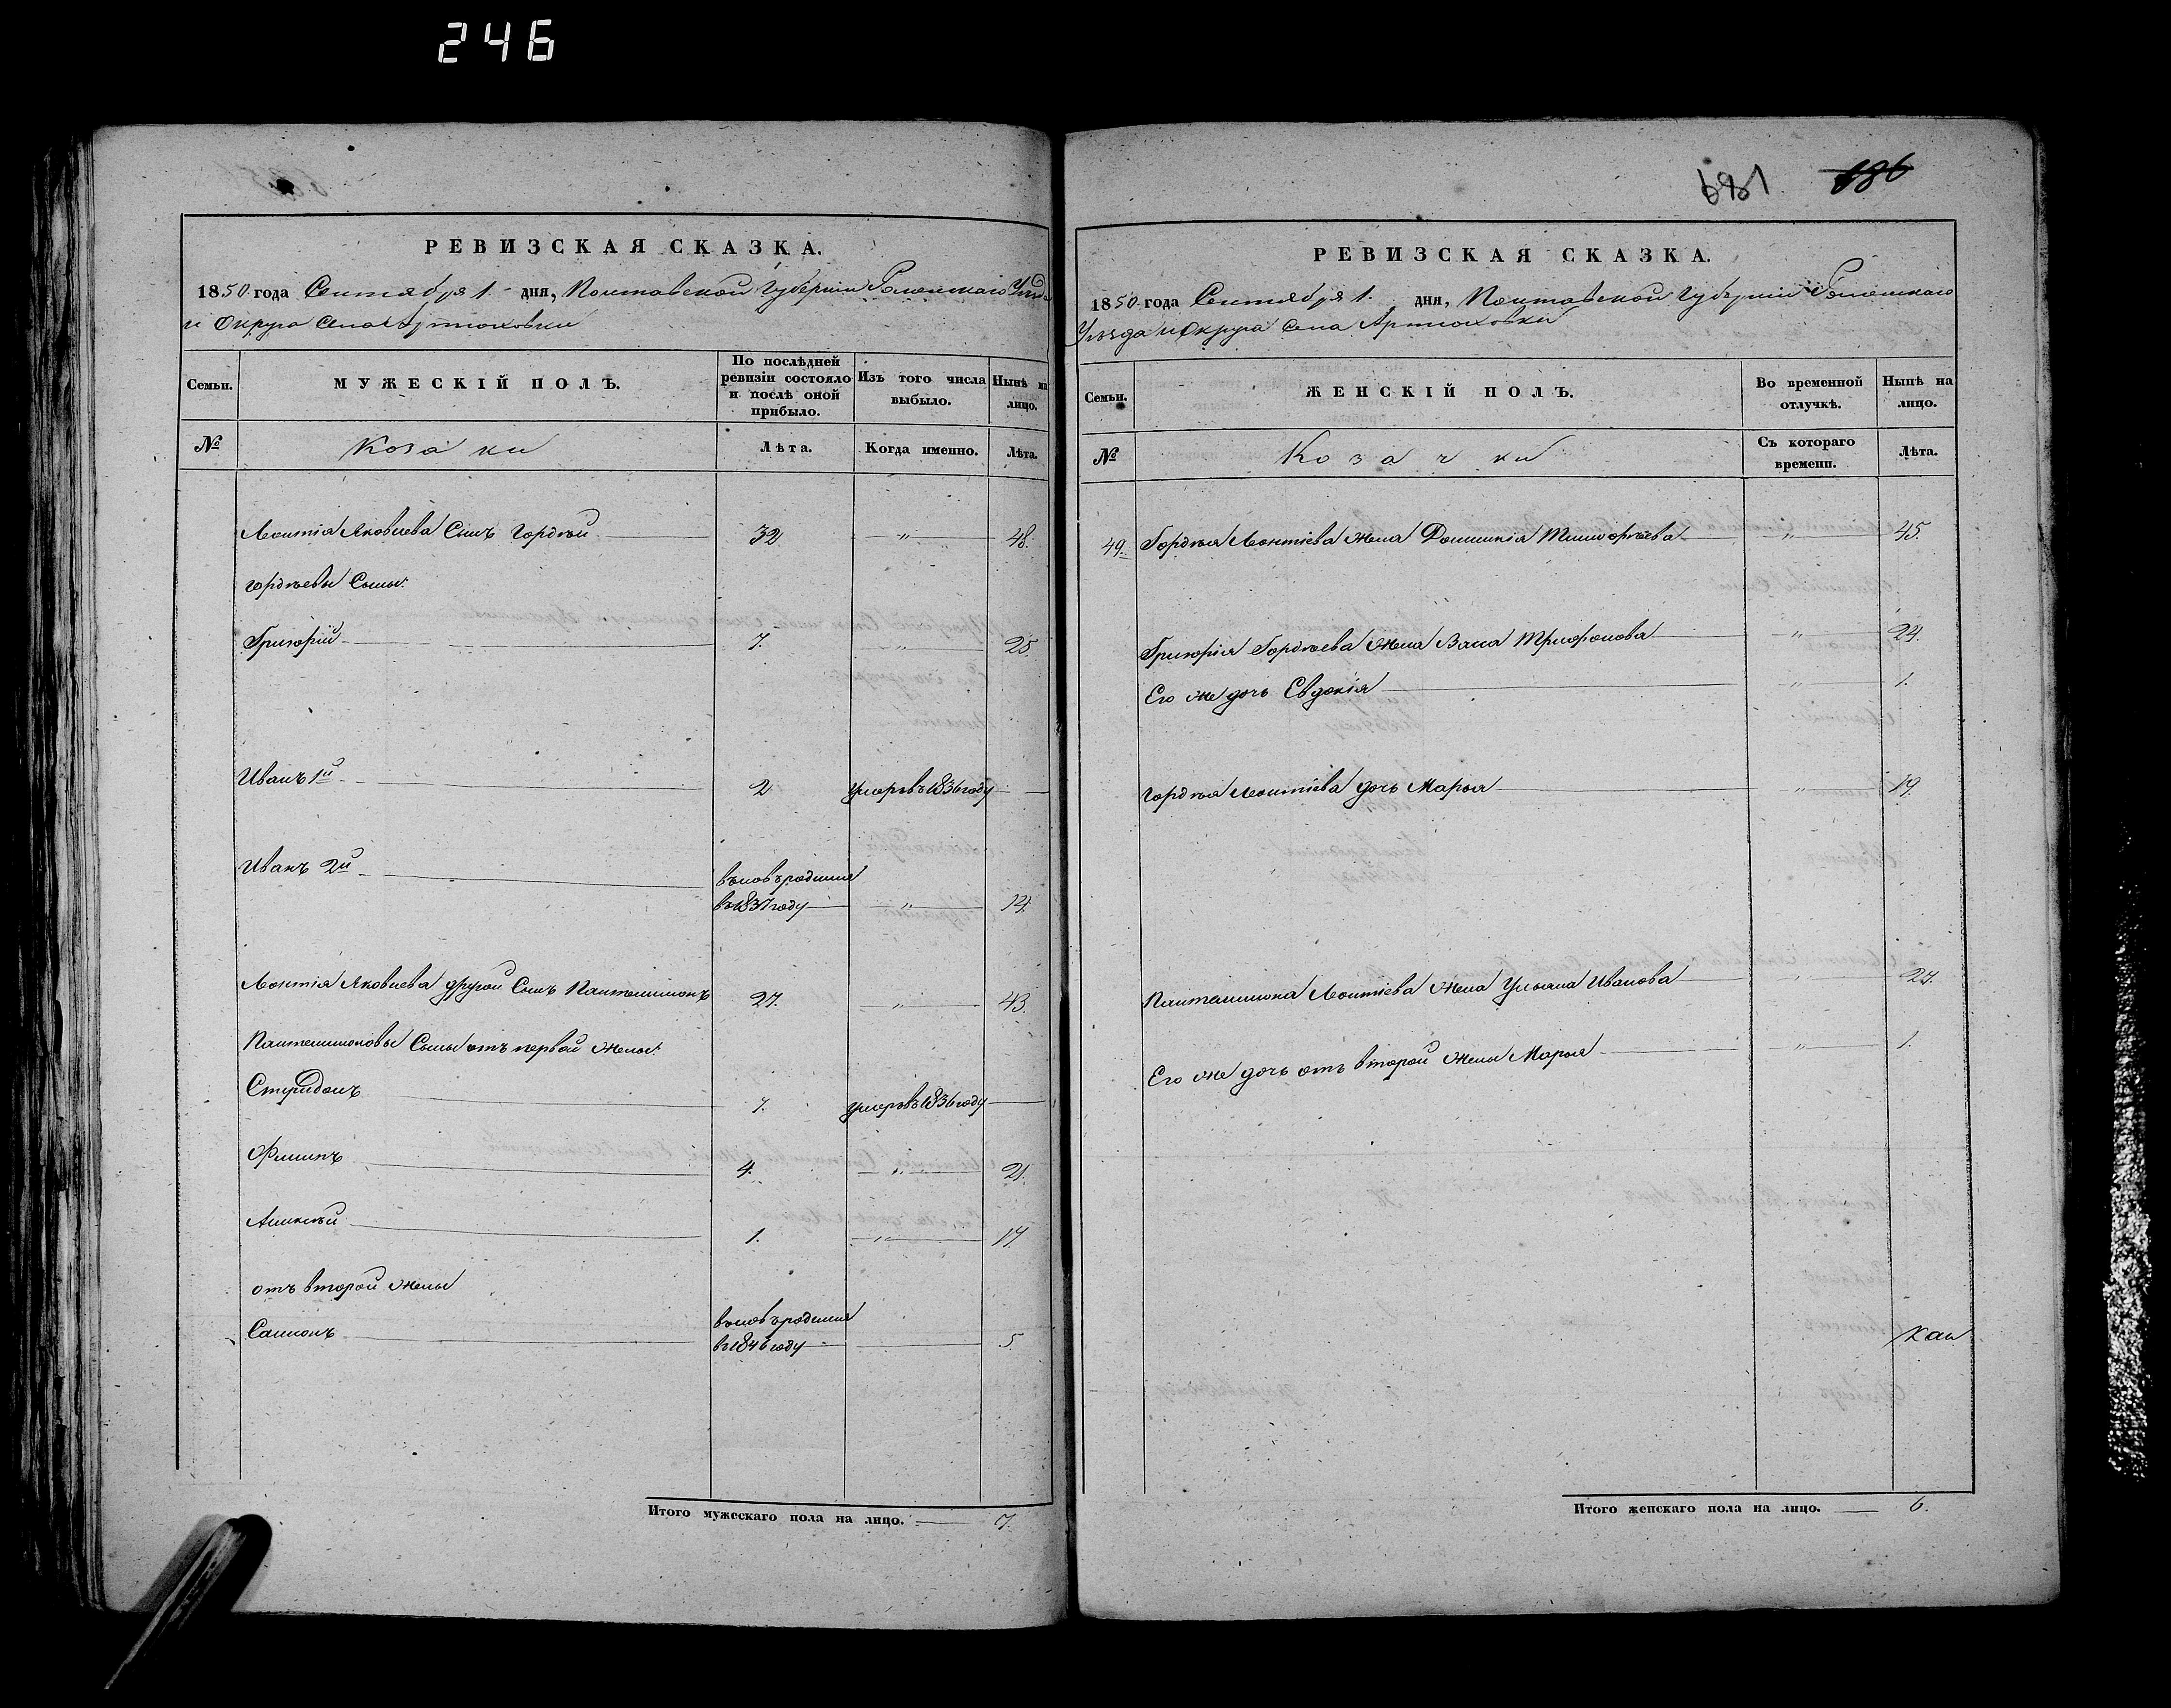 246
РЕВИЗСКАЯ СКАЗКА.
1850 года Сентября 1 дня, Полтавской Губерніи Роменскаго Уѣзда
и Округа села Артюховки
Семьи. МУЖЕСКІЙ ПОЛЪ. По послѣдней ревизіи состояло и послѣ оной прибыло. Изъ того числа выбыло. Нынѣ на лицо.
№ Козаки Лѣта. Когда именно. Лѣта.
Леонтія Яковлева Сынъ Гордѣй 32 " 48.
Гордѣевы Сыны:
Григорій 7. " 25.
Иванъ 1й 2 умеръ въ 1836 году
Иванъ 2й вновь родился
въ 1837 году " 14.
Леонтія Яковлева другой Сынъ Пантелимонъ 27. " 43.
Пантелимоновы Сыны отъ первой жены:
Спиридонъ 7. умеръ въ 1836 году
Филипъ 4. " 21.
Алексѣй 1. " 17.
отъ второй жены
Самсонъ вновь родился
въ 1846 году 5
Итого мужескаго пола на лицо. 7.
681 686
РЕВИЗСКАЯ СКАЗКА.
1850 года Сентября 1. дня, Полтавской Губерніи Роменскаго
Уѣзда и Округа села Артюховки
Семьи. ЖЕНСКІЙ ПОЛЪ. Во временной отлучкѣ. Нынѣ на лицо.
№ Козачки Съ котораго времени. Лѣта.
49. Гордѣя Леонтіева жена Домникія Тимофѣева " 45.
Григорія Гордѣева жена Васа Трифонова " 24.
Его же дочь Евдокія " 1.
Гордѣя Леонтіева дочь Марья " 19.
Пантелимона Леонтіева жена Ульяна Иванова " 27.
Его же дочь отъ второй жены Марья " 1.
Итого женскаго пола на лицо. 6.